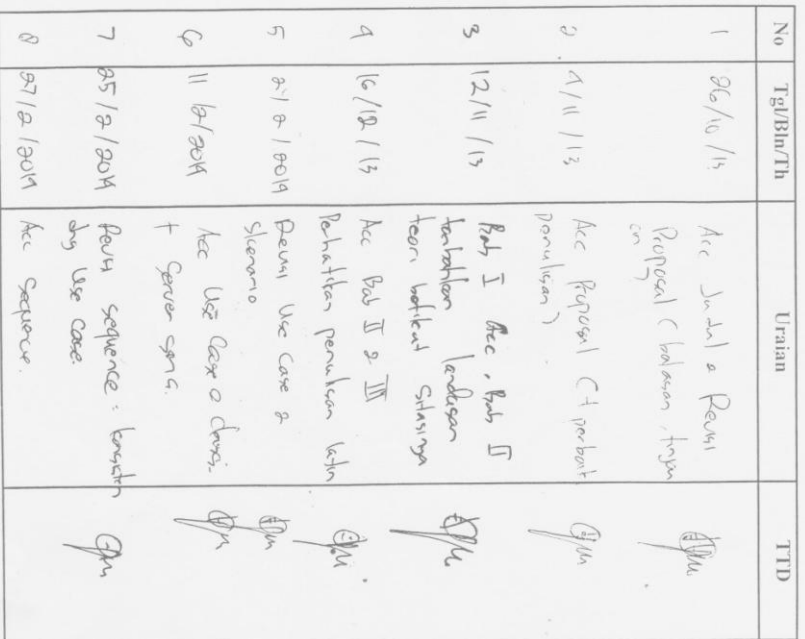 No Tgl/Bln/Th Uraian TTD
1 26/10/13 Acc Judul & Revisi
Proposal (batasan, tinjau
an)
2 4/11/13 Acc Proposal (+ perbaik
penulisan)
3 12/11/13 Bab I Acc, Bab II
tambahkan landasan
teori berikut sitasinya
4 16/12/13 Acc Bab II & III
Perhatikan penulisan latin
5 2/2/2014 Revisi Use Case &
Skenario
6 11/2/2014 Acc Use Case &
+ Server
7 25/2/2014 Revisi sequence: konsisten
dng Use Case.
8 27/2/2014 Acc Sequence.